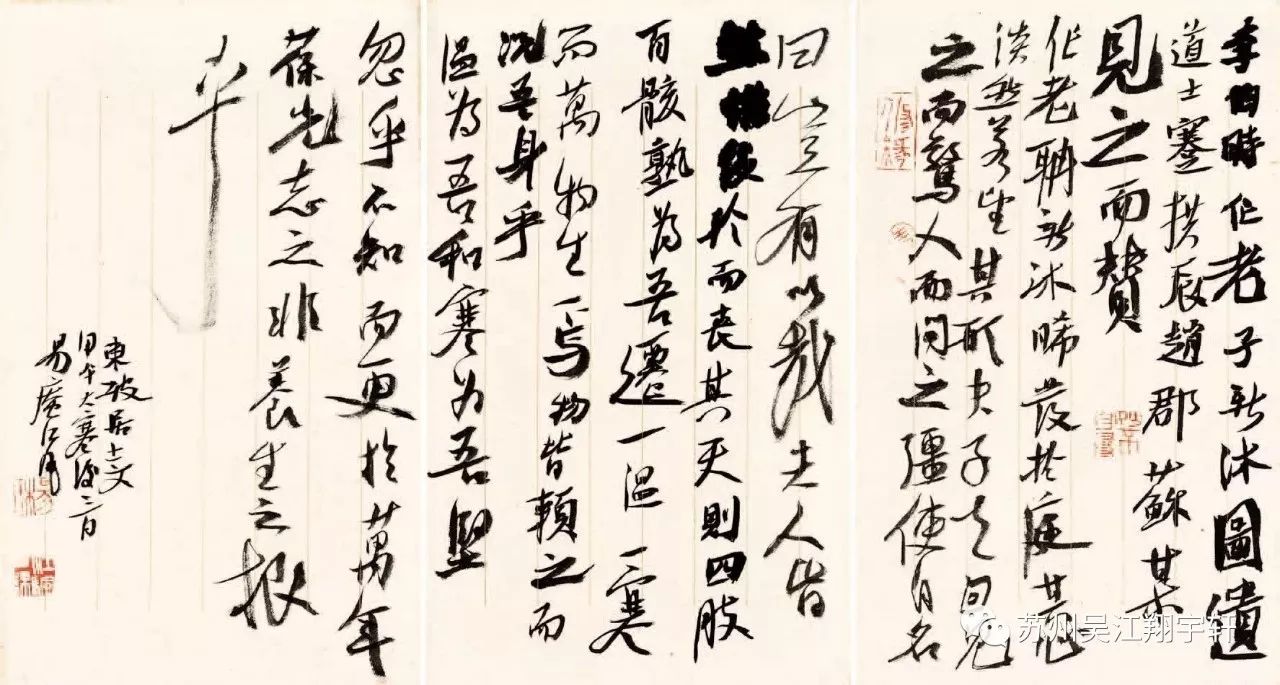 李伯時作老子新沐圖遺
道士蹇拱辰趙郡蘇某
見之而贊
作老聃新沐晞髮於庭其
淡然若其形夫子回見
之而驚入而問之彊使自名
曰豈有以哉夫人皆
然惟役於而喪其天則四肢
百骸孰為吾遷一温一寒
而萬物生焉物皆賴之而
況吾身乎
温為吾和寒為吾堅
忽乎不知而更於萬年
葆光志之非養生之根
乎
東坡居士文
甲午大寒後二日
易庵
苏州吴江翔宇轩